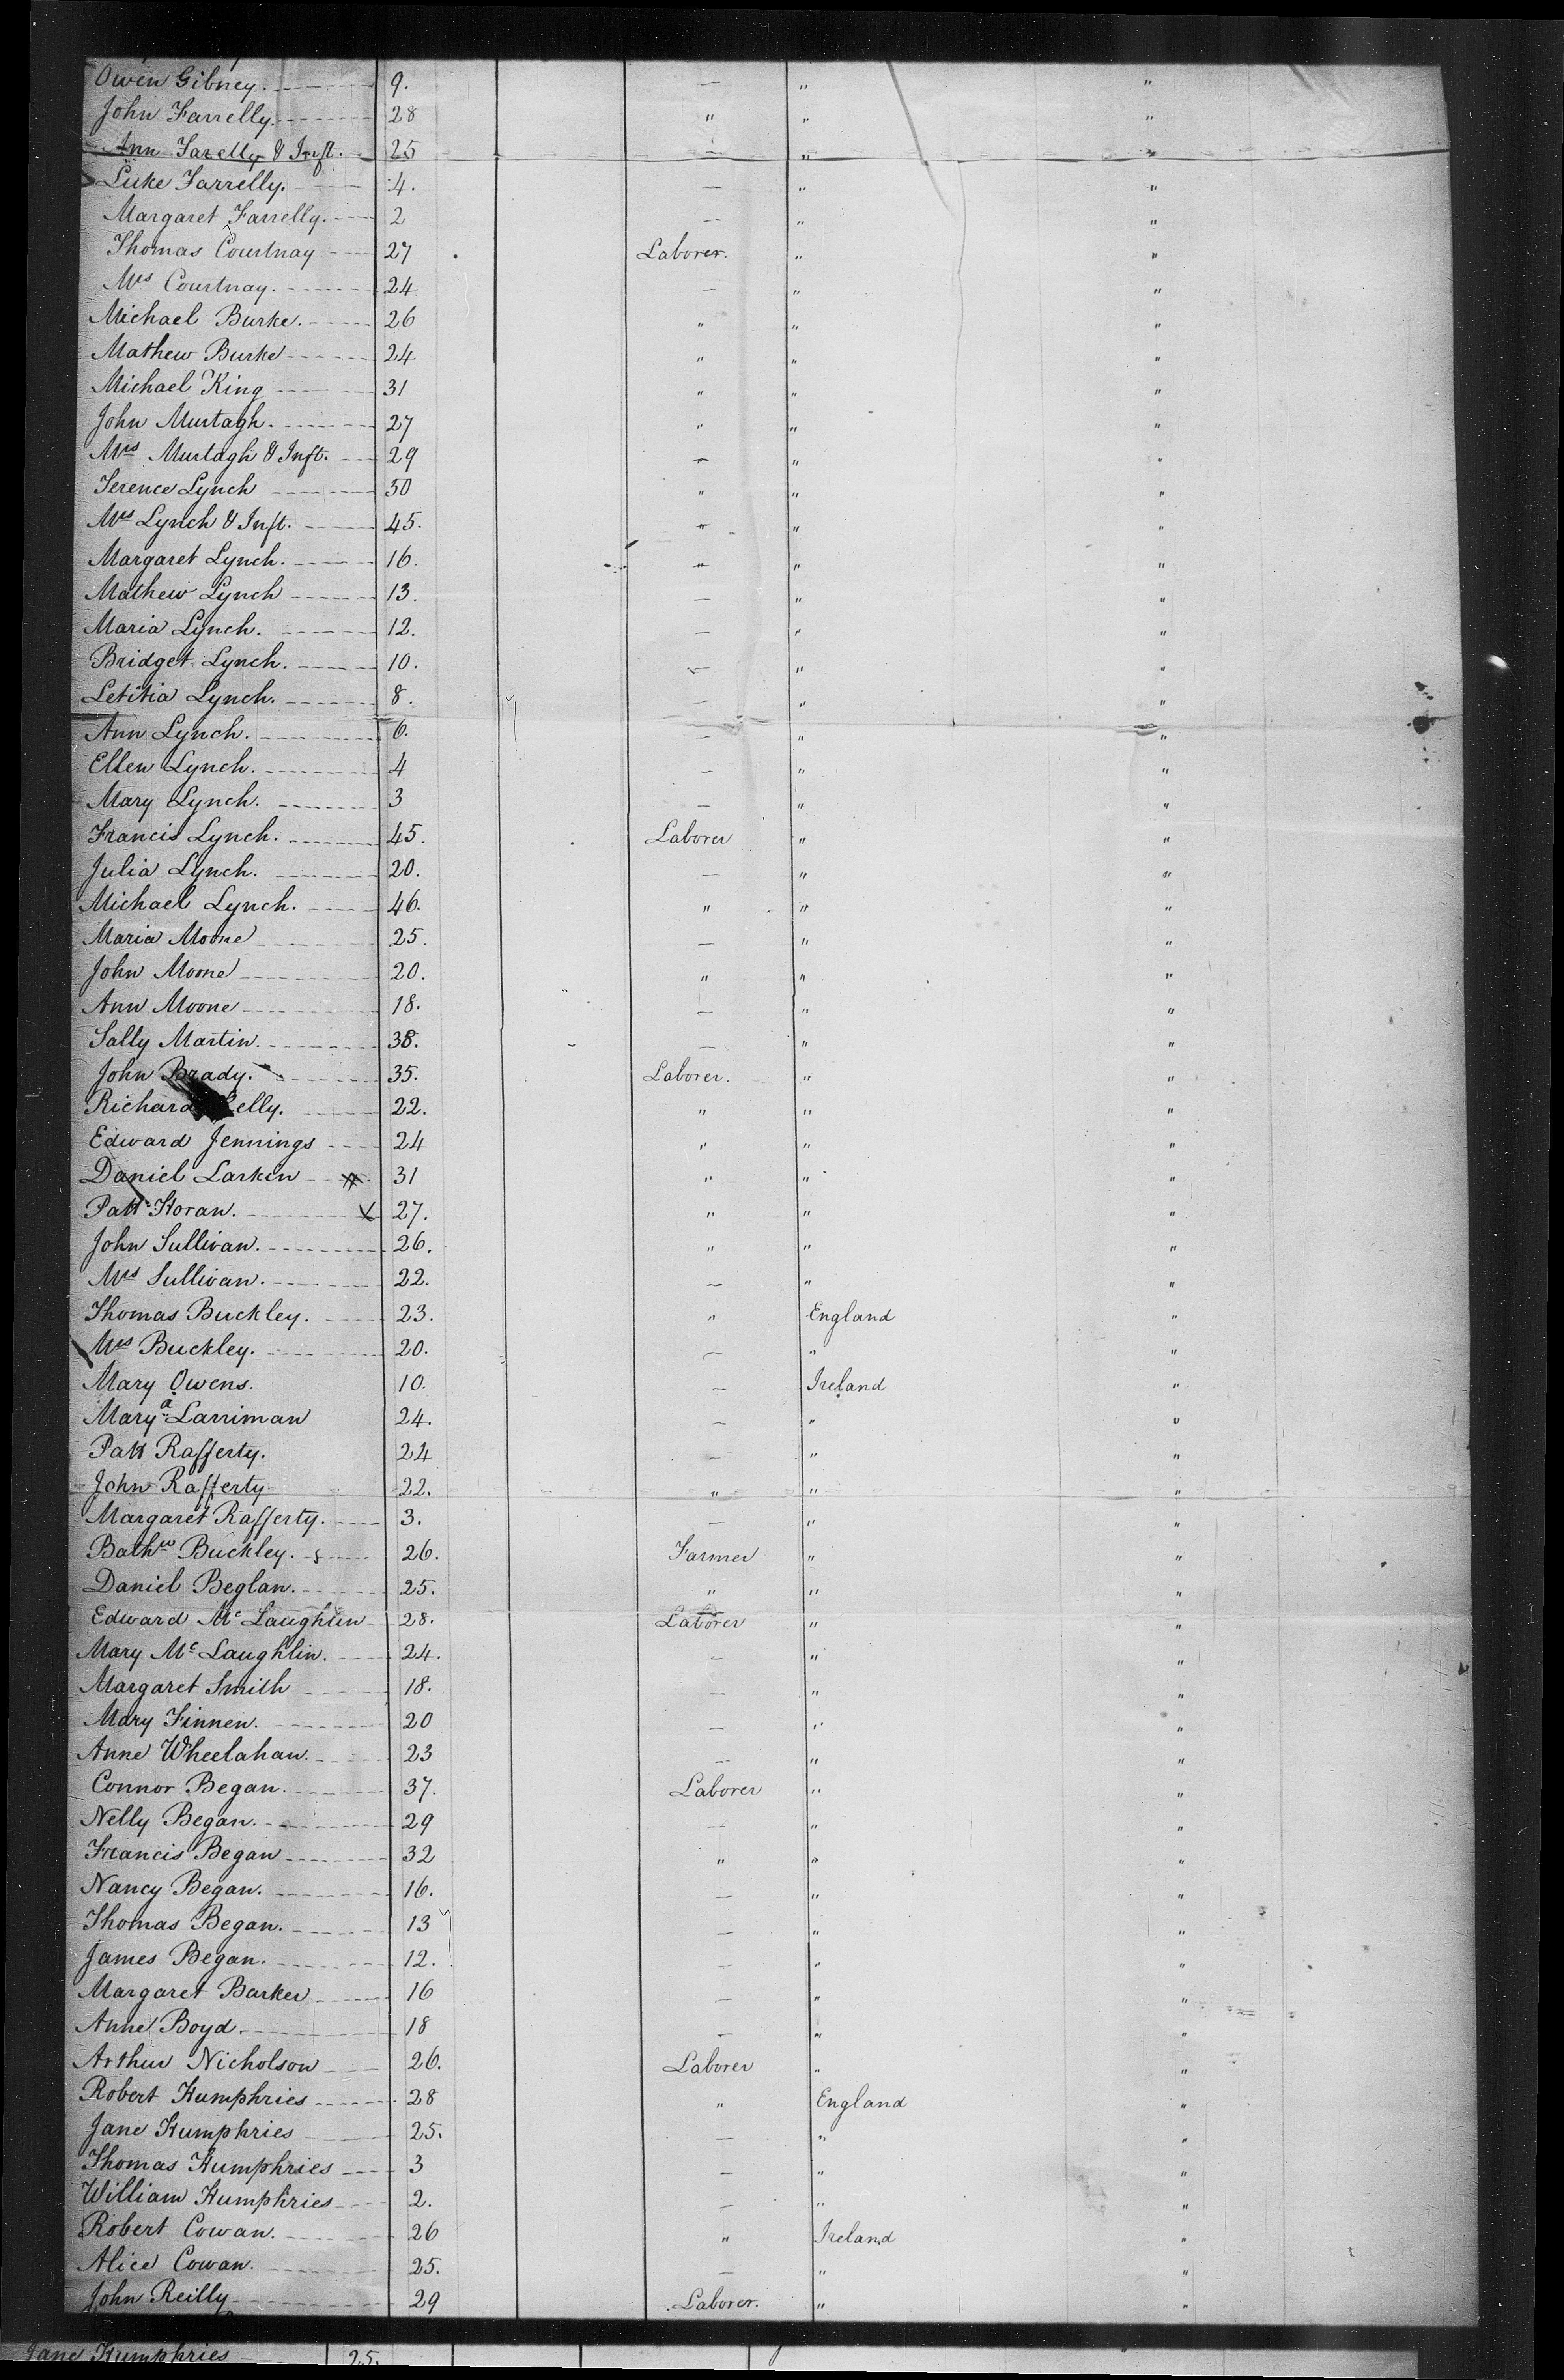 Owen Gibney. 9. — " "
John Farrelly 28 " " "
Ann Farelly & Inft. 25 — " "
Luke Farrelly. 4. — " "
Margaret Farrelly. 2 — " "
Thomas Courtnay 27 Laborer. " "
Mrs Courtnay. 24 — " "
Michael Burke. 26 " " "
Mathew Burke 24 " " "
Michael King 31 " " "
John Murtagh. 27 " " "
Mrs Murtagh & Inft. 29 — " "
Terence Lynch 30 " " "
Mrs Lynch & Inft. 45. — " "
Margaret Lynch. 16. — " "
Mathew Lynch 13. — " "
Maria Lynch. 12. — " "
Bridget Lynch. 10. — " "
Letitia Lynch. 8. — " "
Ann Lynch. 6. — " "
Ellen Lynch. 4 — " "
Mary Lynch. 3 — " "
Francis Lynch. 45. Laborer " "
Julia Lynch. 20. — " "
Michael Lynch. 46. " " "
Maria Moone 25. — " "
John Moone 20. " " "
Ann Moone 18. — " "
Sally Martin. 38. — " "
John Brady. 35. Laborer. " "
Richard elly. 22. " " "
Edward Jennings 24 " " "
Daniel Larkin 31 " " "
Patk Horan. X 27. " " "
John Sullivan. 26. " " "
Mrs Sullivan. 22. — " "
Thomas Buckley. 23. " England "
Mrs Buckley. 20. — " "
Mary Owens. 10. — Ireland "
Mary a Larriman 24. — " "
Patk Rafferty. 24 — " "
John Rafferty 22. " " "
Margaret Rafferty. 3. — " "
Bathw Buckley. 26. Farmer " "
Daniel Beglan. 25. " " "
Edward Mc Laughlin 28. Laborer " "
Mary Mc Laughlin. 24. — " "
Margaret Smith 18. — " "
Mary Finnen. 20 — " "
Anne Wheelahan. 23 — " "
Connor Began. 37. Laborer " "
Nelly Began. 29 — " "
Francis Began 32 " " "
Nancy Began. 16. — " "
Thomas Began. 13 — " "
James Began. 12. — " "
Margaret Barker 16 — " "
Anne Boyd. 18 — " "
Arthur Nicholson 26. Laborer " "
Robert Humphries 28 " England "
Jane Humphries 25. — " "
Thomas Humphries 3 — " "
William Humphries 2. — " "
Robert Cowan. 26 " Ireland "
Alice Cowan. 25. — " "
John Reilly 29 Laborer. " "
Jane Humphries 25.